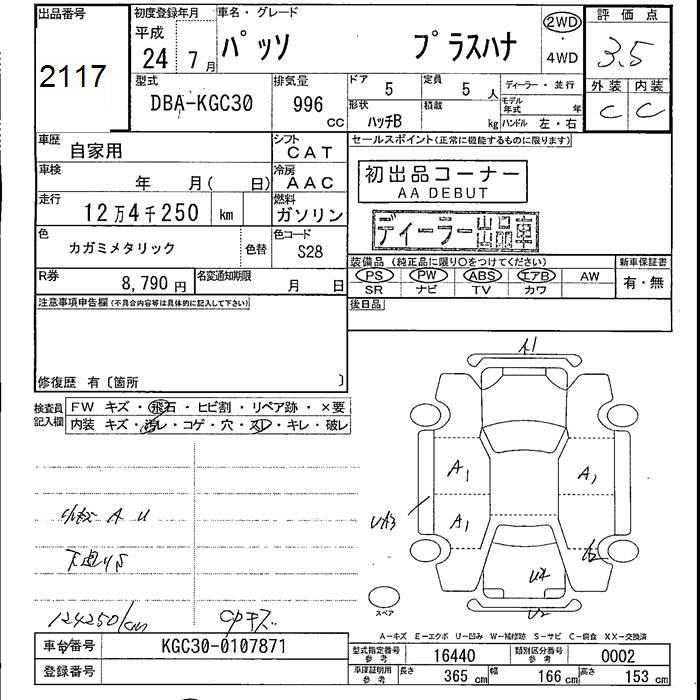 出品番号
2117
初度登録年月
平成
24年 7月
車名・グレード
パッソ プラスハナ
2WD
・
4WD
評価点
3.5
外装 内装
C C
型式
DBA-KGC30
排気量
996
CC
ドア 5 定員 5 人
形状 ハッチB 積載 kg
ディーラー・並行
モデル年式 年
ハンドル 左・右
車歴 自家用
シフト CAT
車検 年 月( 日)
冷房 AAC
走行 12万4千250 km
燃料 ガソリン
色 カガミメタリック 色替
色コード S28
R券 8,790円
名変通知期限 月 日
セールスポイント(正常に機能するものに限ります)
初出品コーナー
AA DEBUT
ディーラー出品車
装備品 (純正品に限り○をつけてください)
PS PW ABS エアB AW
SR ナビ TV カワ
新車保証書
有・無
後日品
注意事項申告欄(不具合内容等は具体的に記入して下さい)
修復歴 有〔箇所 〕
検査員記入欄
FW キズ・飛石・ヒビ割・リペア跡・×要
内装 キズ・汚レ・コゲ・穴・スレ・キレ・破レ
小傷 A U
下廻りS
124250km
CPキズ
A1
A1
A1
A1
A2
U4
U2
スペア
A-キズ E-エクボ U-凹み W-補修跡 S-サビ C-腐食 XX-交換済
車台番号 KGC30-0107871
登録番号
型式指定番号 参考 16440 類別区分番号 参考 0002
車庫証明用 参考 長さ 365 cm 幅 166 cm 高さ 153 cm